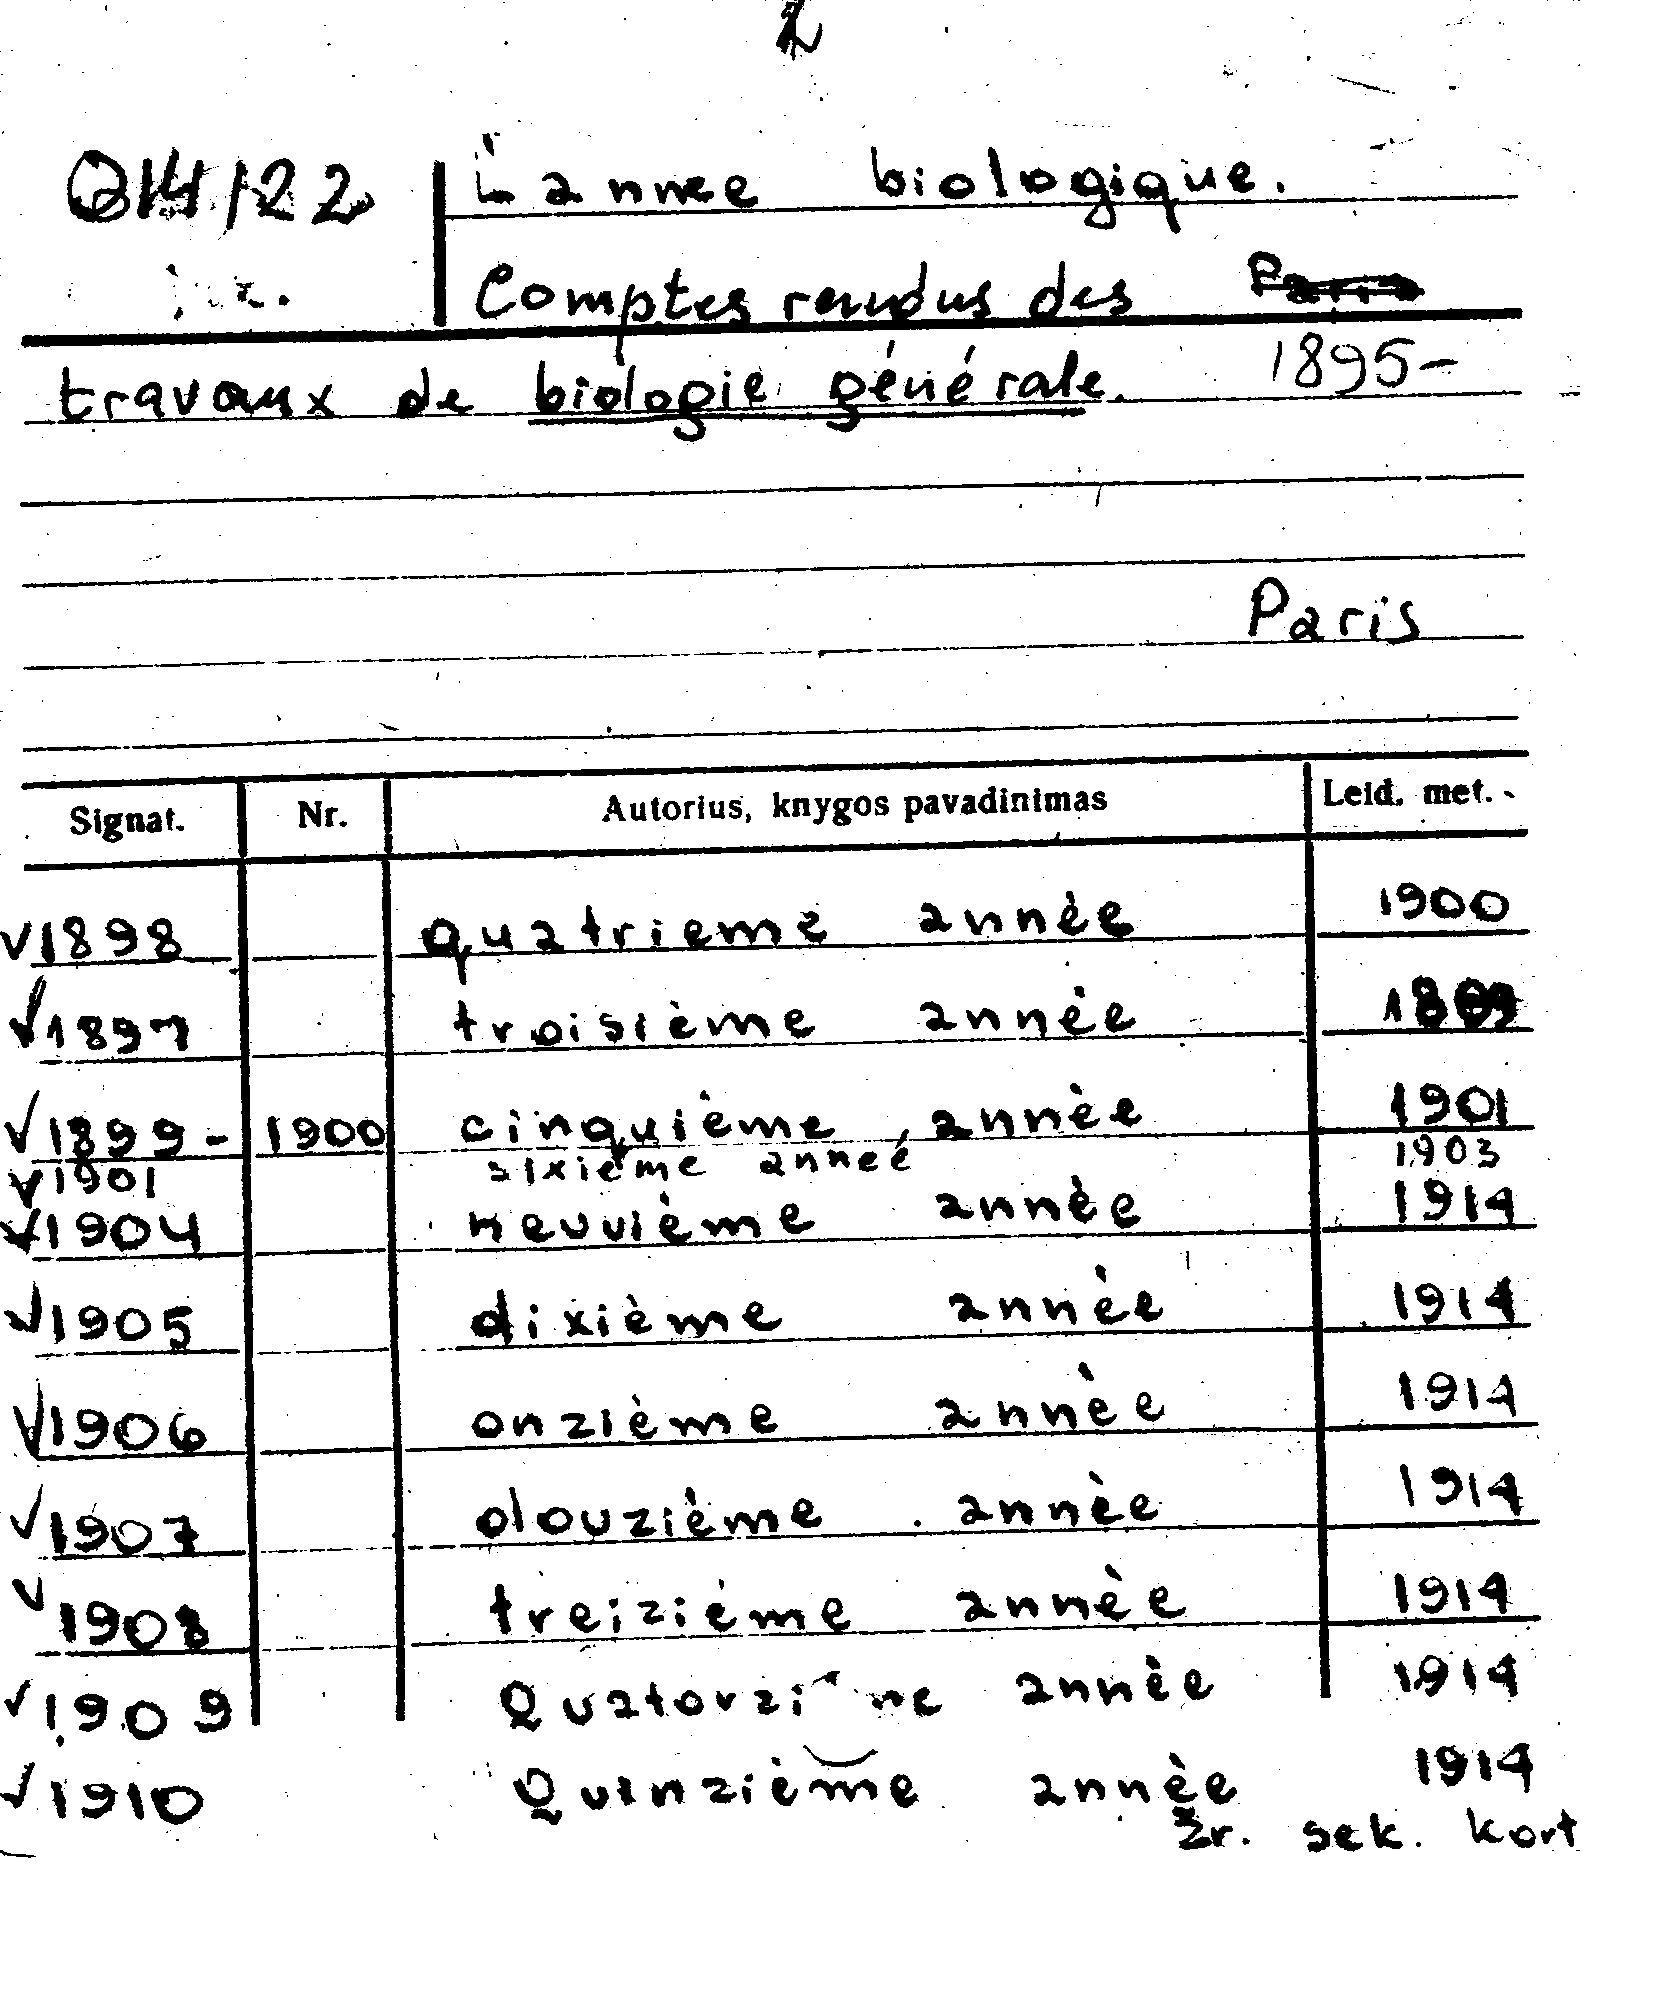 2
Q14/22 L'annee biologique.
Comptes rendus des
travaux de biologie générale. 1895-
Paris
Signat. Nr. Autorius, knygos pavadinimas Leid. met.
v 1898 quatrieme annèe 1900
v 1897 troisième annèe
v 1899- 1900 cinquième annèe 1901
v 1901 sixièmeanneé 1903
v 1904 neuvième annèe 1914
v 1905 dixième annèe 1914
v 1906 onzième annèe 1914
v 1907 douzième annèe 1914
v 1908 treizième annèe 1914
v 1909 Quatorzième annèe 1914
v 1910 Quinzième annèe 1914
žr. sek. kort